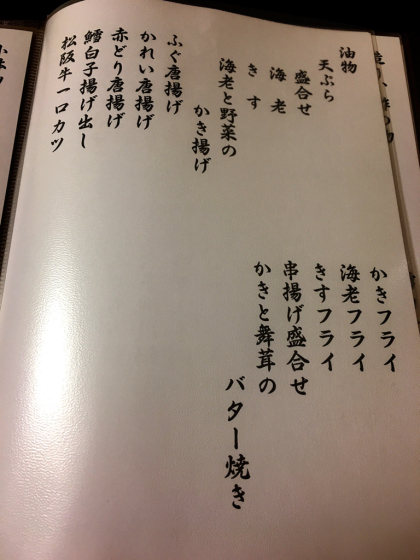 油物
天ぷら
盛合せ
海老
きす
海老と野菜の
かき揚げ
ふぐ唐揚げ
かれい唐揚げ
赤どり唐揚げ
鱈白子揚げ出し
松阪牛一口カツ
かきフライ
海老フライ
きすフライ
串揚げ盛合せ
かきと舞茸の
バター焼き